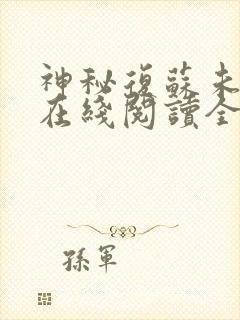 神秘復蘇未
在綫閱讀全
孫軍